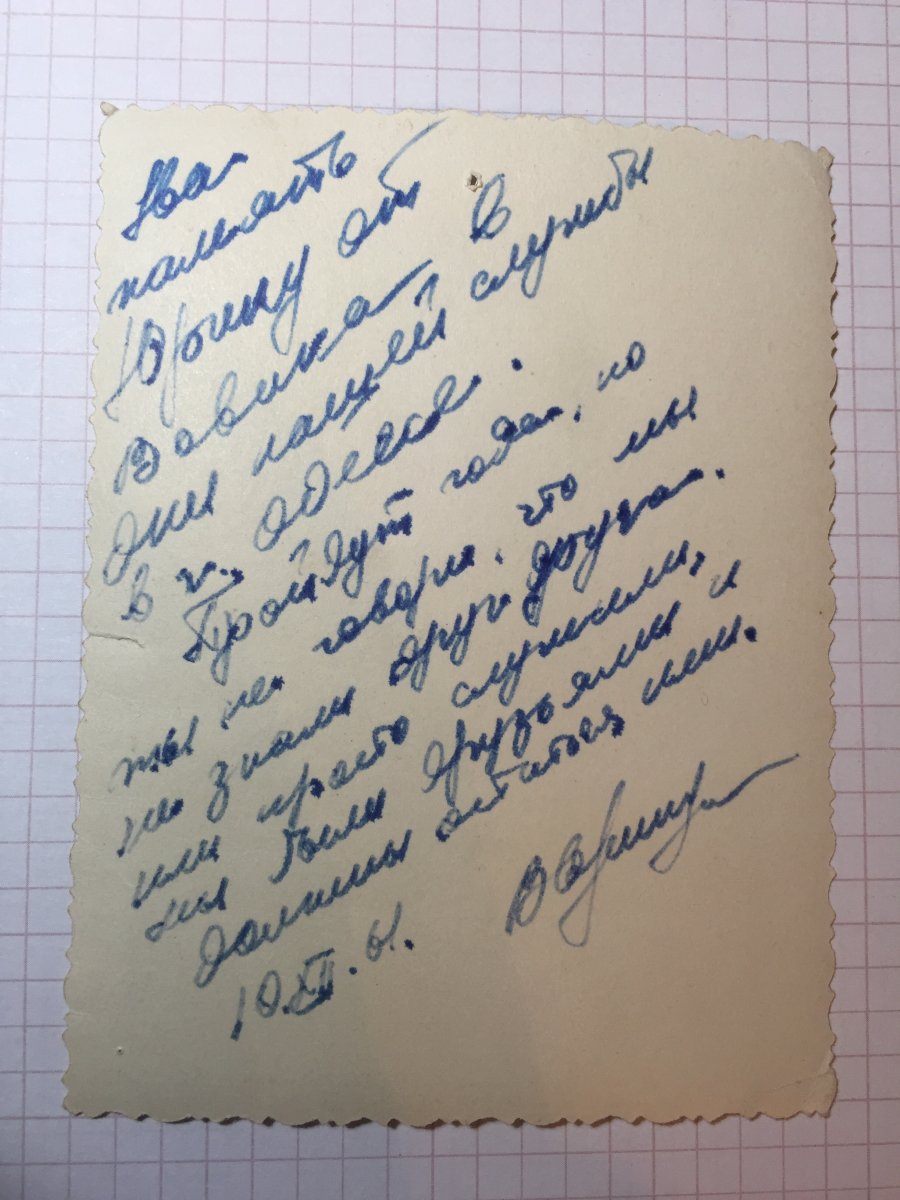 На
память
Юрику от
Вовика в
дни нашей службы
в г. Одесса.
Пройдут года, но
ты не говори, что мы
не знали друг друга.
или просто служили,
мы были друзьями и
должны остаться ими.
10.XII.61.